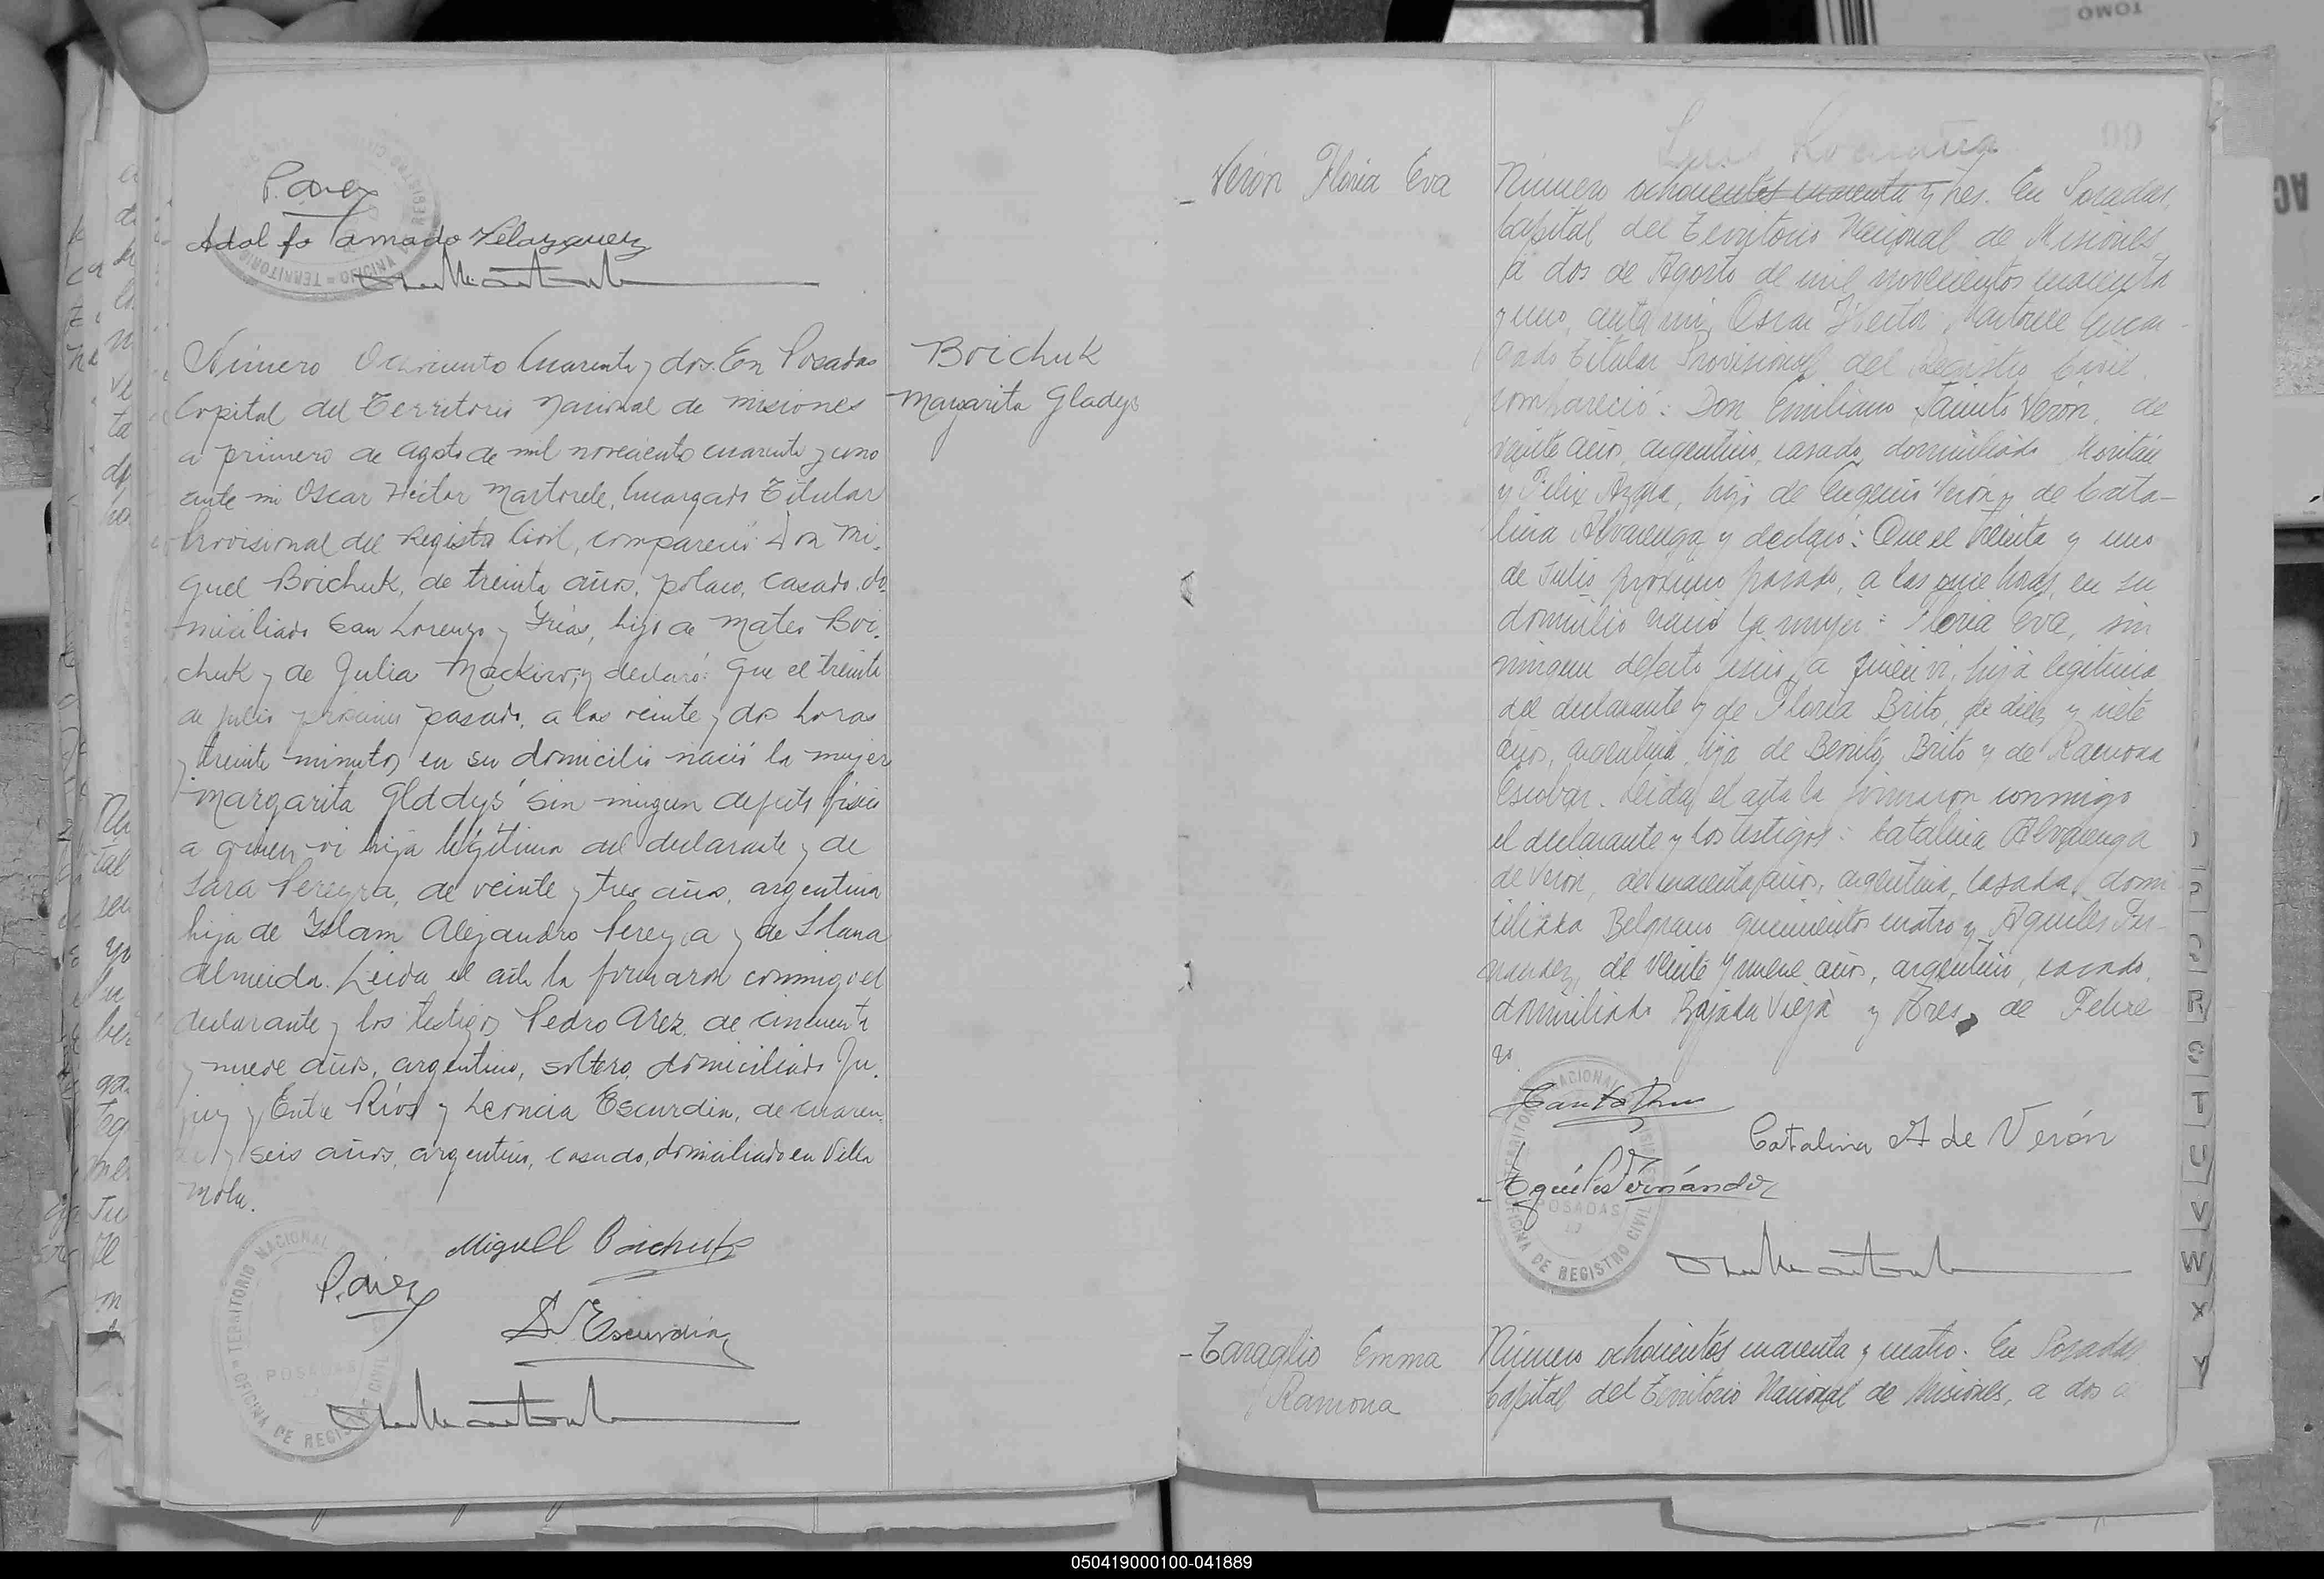 P. Arez
Adolfo Amado Velazquez
Número Ochociento Cuarenta y dos. En Posadas
Capital del Territorio Nacional de misiones
a primero de agosto de mil noveciento cuarenta y uno
ante mi Oscar Héctor Martorele, Encargado Titular
Provisional del Registro Civil, compareció Don Mi-
guel Boichuk, de treinta años, polaco, casado, do-
miciliado San Lorenzo y Frías, hijo de Mateo Boi-
chuk y de Julia y declaró: Que el treinta
de julio próximo pasado, a las veinte y dos horas
y treinta minutos en su domicilio nació la mujer
"margarita Gladys" sin ningun defecto físico
a quien vi hija legítima del declarante y de
Sara Pereyra, de veinte y tres años, argentina
hija de Alejandro Pereyra y de
Almeida. Leida el acta la firmaron conmigo el
declarante y los testigos Pedro Arez, de cincuenta
y nueve años, argentino, soltero, domiciliado Ju-
juy y Entre Ríos y Leoncia Escurdia, de cuaren-
ta y seis años, argentino, casado, domiciliado en Villa
Mola.
Miguel Boichuk
P. Arez
L. Escurdia
TERRITORIO NACIONAL
POSADAS
OFICINA DE REGISTRO CIVIL
Boichuk
Margarita Gladys
- Verón Floria Eva
Número ochocientos cuarenta y tres. En Posadas,
Capital del Territorio Nacional de Misiones
a dos de Agosto de mil novecientos cuarenta
y uno, ante mi, Oscar Héctor Martorele Encar-
gado Titular Provisional del Registro Civil,
compareció: Don Emiliano Verón, de
veinte años, argentino, casado, domiciliado
y Felix Azara, hijo de Eugenio Verón y de Cata-
lina Alvarenga y declaró: Que el treinta y uno
de Julio próximo pasado, a las once horas, en su
domicilio nació la mujer: Floria Eva, sin
ningun defecto fisico, a quien vi, hija legítima
del declarante y de Floria Brito, de diez y siete
años, argentina, hija de Benito Brito y de Ramona
Escobar. Leida el acta la firmaron conmigo
el declarante y los testigos: Catalina Alvarenga
de Verón, de cuarenta años, argentina, casada, domi
ciliada Belgrano quinientos cuatro y Aquiles Fer-
nandez, de veinte y nueve años, argentino, casado,
domiciliado Bajada Vieja y Tres de Febre
ro.
Catalina A de Verón
Aquiles Fernández
POSADAS
OFICINA DE REGISTRO CIVIL
- Taraglio Emma
Ramona
Número ochocientos cuarenta y cuatro. En Posadas
Capital del Territorio Nacional de Misiones, a dos d
R
S
T
U
V
W
X
Y
TOMO
050419000100-041889